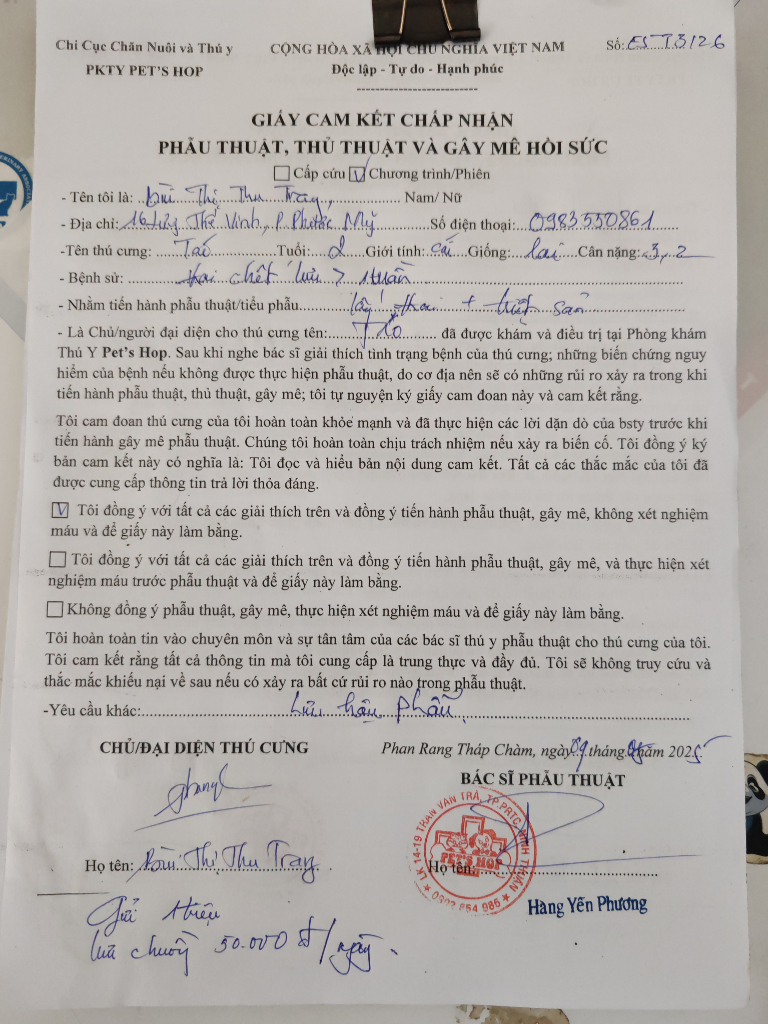 Chi Cục Chăn Nuôi và Thú y CỘNG HÒA XÃ HỘI CHỦ NGHĨA VIỆT NAM Số:
PKTY PET'S HOP Độc lập - Tự do - Hạnh phúc
GIẤY CAM KẾT CHẤP NHẬN
PHẪU THUẬT, THỦ THUẬT VÀ GÂY MÊ HỒI SỨC
Cấp cứu V Chương trình/Phiên
- Tên tôi là: Bùi Thị Thu Trang, Nam/ Nữ
- Địa chỉ: 16 Thế Vinh, P. Phước Mỹ Số điện thoại: 0983550861
-Tên thú cưng: Táo Tuổi: 2 Giới tính: cái Giống: lai Cân nặng: 3,2
- Bệnh sử: thai chết lưu > tuần
- Nhằm tiến hành phẫu thuật/tiểu phẫu lấy thai + triệt sản
- Là Chủ/người đại diện cho thú cưng tên: Táo đã được khám và điều trị tại Phòng khám
Thú Y Pet's Hop. Sau khi nghe bác sĩ giải thích tình trạng bệnh của thú cưng; những biến chứng nguy
hiểm của bệnh nếu không được thực hiện phẫu thuật, do cơ địa nên sẽ có những rủi ro xảy ra trong khi
tiến hành phẫu thuật, thủ thuật, gây mê; tôi tự nguyện ký giấy cam đoan này và cam kết rằng.
Tôi cam đoan thú cưng của tôi hoàn toàn khỏe mạnh và đã thực hiện các lời dặn dò của bsty trước khi
tiến hành gây mê phẫu thuật. Chúng tôi hoàn toàn chịu trách nhiệm nếu xảy ra biến cố. Tôi đồng ý ký
bản cam kết này có nghĩa là: Tôi đọc và hiểu bản nội dung cam kết. Tất cả các thắc mắc của tôi đã
được cung cấp thông tin trả lời thỏa đáng.
V Tôi đồng ý với tất cả các giải thích trên và đồng ý tiến hành phẫu thuật, gây mê, không xét nghiệm
máu và để giấy này làm bằng.
Tôi đồng ý với tất cả các giải thích trên và đồng ý tiến hành phẫu thuật, gây mê, và thực hiện xét
nghiệm máu trước phẫu thuật và để giấy này làm bằng.
Không đồng ý phẫu thuật, gây mê, thực hiện xét nghiệm máu và để giấy này làm bằng.
Tôi hoàn toàn tin vào chuyên môn và sự tân tâm của các bác sĩ thú y phẫu thuật cho thú cưng của tôi.
Tôi cam kết rằng tất cả thông tin mà tôi cung cấp là trung thực và đầy đủ. Tôi sẽ không truy cứu và
thắc mắc khiếu nại về sau nếu có xảy ra bất cứ rủi ro nào trong phẫu thuật.
-Yêu cầu khác: Lưu hậu phẫu.
CHỦ/ĐẠI DIỆN THÚ CƯNG Phan Rang Tháp Chàm, ngày 09 tháng năm 2025
BÁC SĨ PHẪU THUẬT
LK 14-19 TRẦN VĂN TRÀ, TP.PRTC, NINH THUẬN
PET'S HOP
Họ tên: Bùi Thị Thu Trang Họ tên:
Hàng Yến Phương
50.000 đ/ngày.